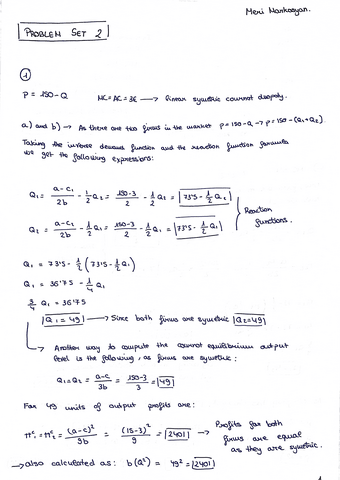 Meri Markosyan.
PROBLEM SET 2
①
P = 150-Q MC=AC=3€ → linear symetric cournot duopoly.
a) and b) → As there are two firms in the market p=150-Q → p=150-(Q₁+Q₂).
Taking the inverse demand function and the reaction function formula
we get the following expressions:
Q₁ = a-c₁/2b - 1/2 Q₂ = 150-3/2 - 1/2 Q₂ = 73'5 - 1/2 Q₂
Reaction
functions.
Q₂ = a-c₂/2b - 1/2 Q₁ = 150-3/2 - 1/2 Q₁ = 73'5 - 1/2 Q₁
Q₁ = 73'5 - 1/2 (73'5 - 1/2 Q₁)
Q₁ = 36'75 - 1/4 Q₁
3/4 Q₁ = 36'75
Q₁ = 49 → Since both firms are symetric Q₂=49
Another way to compute the cournot equilibrium output
level is the following, as firms are symetric:
Q₁=Q₂ = a-c/3b = 150-3/3 = 49
For 49 units of output profits are:
π₁ᶜ = π₂ᶜ = (a-c)²/9b = (15-3)²/9 = 2401 → Profits for both
firms are equal
as they are symetric.
→ also calculated as: b(Q²) = 49² = 2401